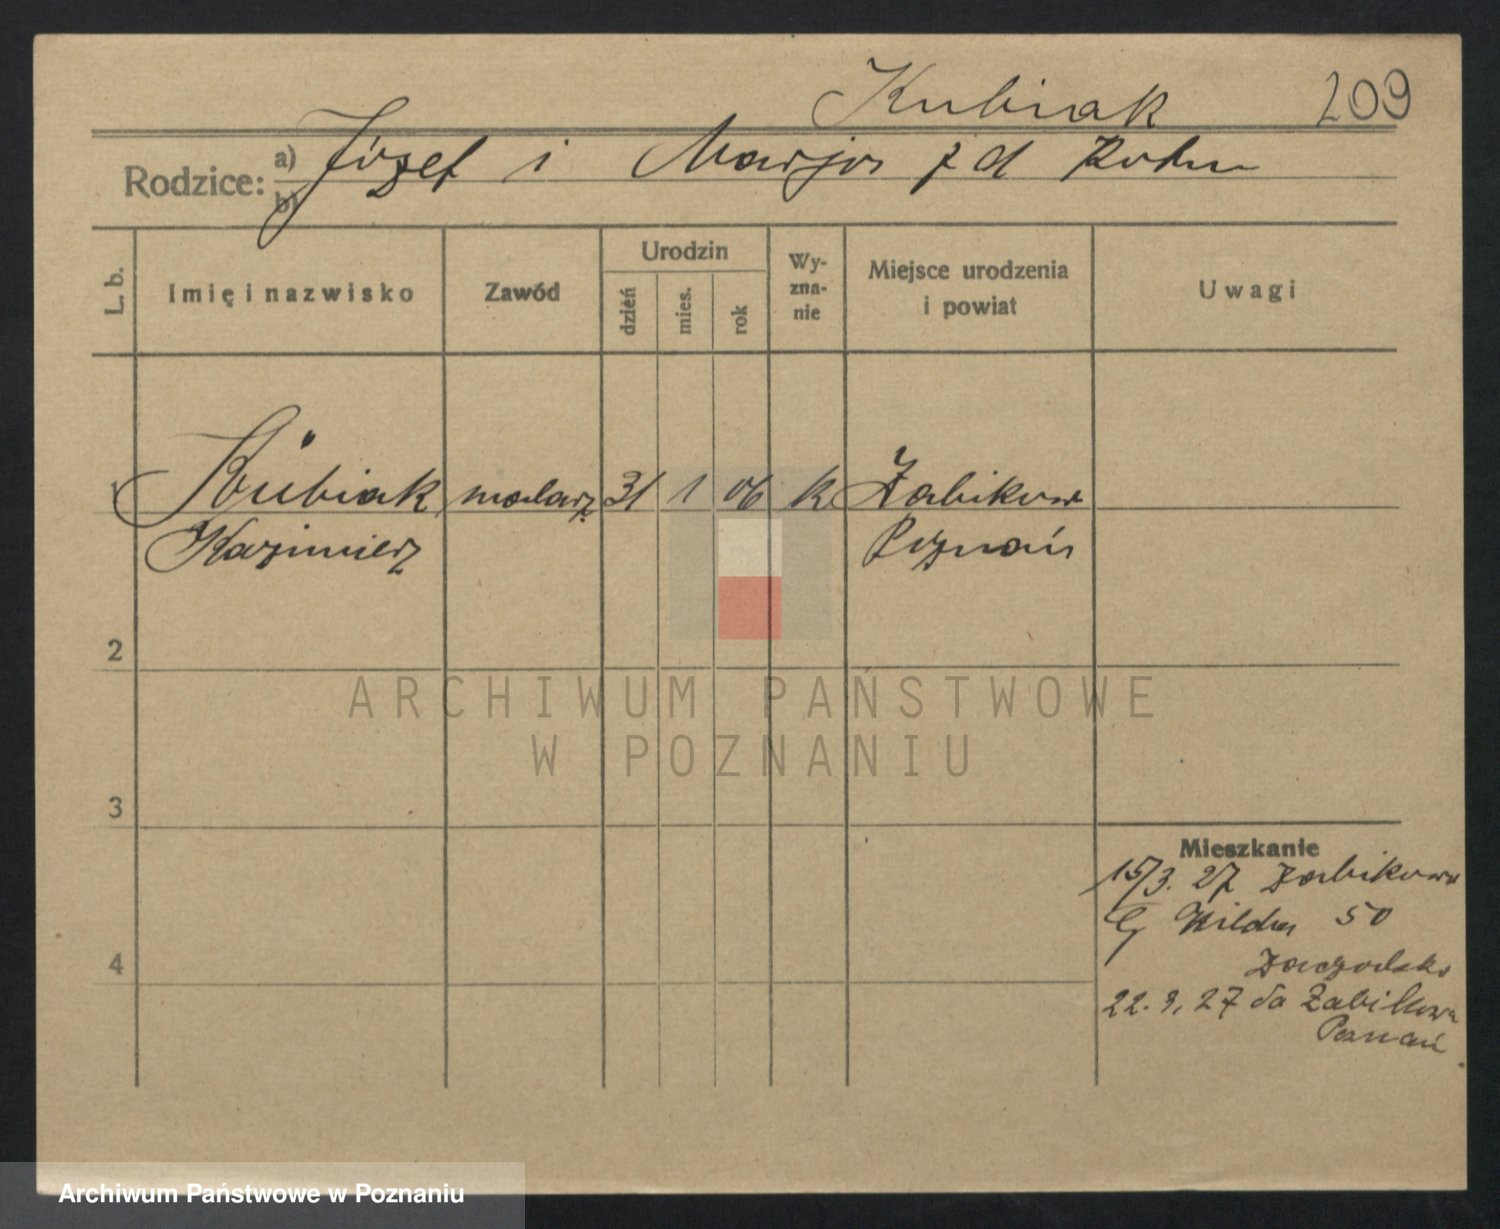 Kubiak 209
Rodzice: a) Józef i Marja z d
b)
L. b. Imię i nazwisko Zawód Urodzin dzień mies. rok Wyznanie Miejsce urodzenia i powiat Uwagi
1 Kubiak malarz 31 1 06 k Żabikowo
Kazimierz Poznań
2
ARCHIWUM PAŃSTWOWE
W POZNANIU
3
Mieszkanie
15/3. 27 Żabikowo
G Wilda 50
4
22. 9. 27 do Żabikowa
Poznań
Archiwum Państwowe w Poznaniu